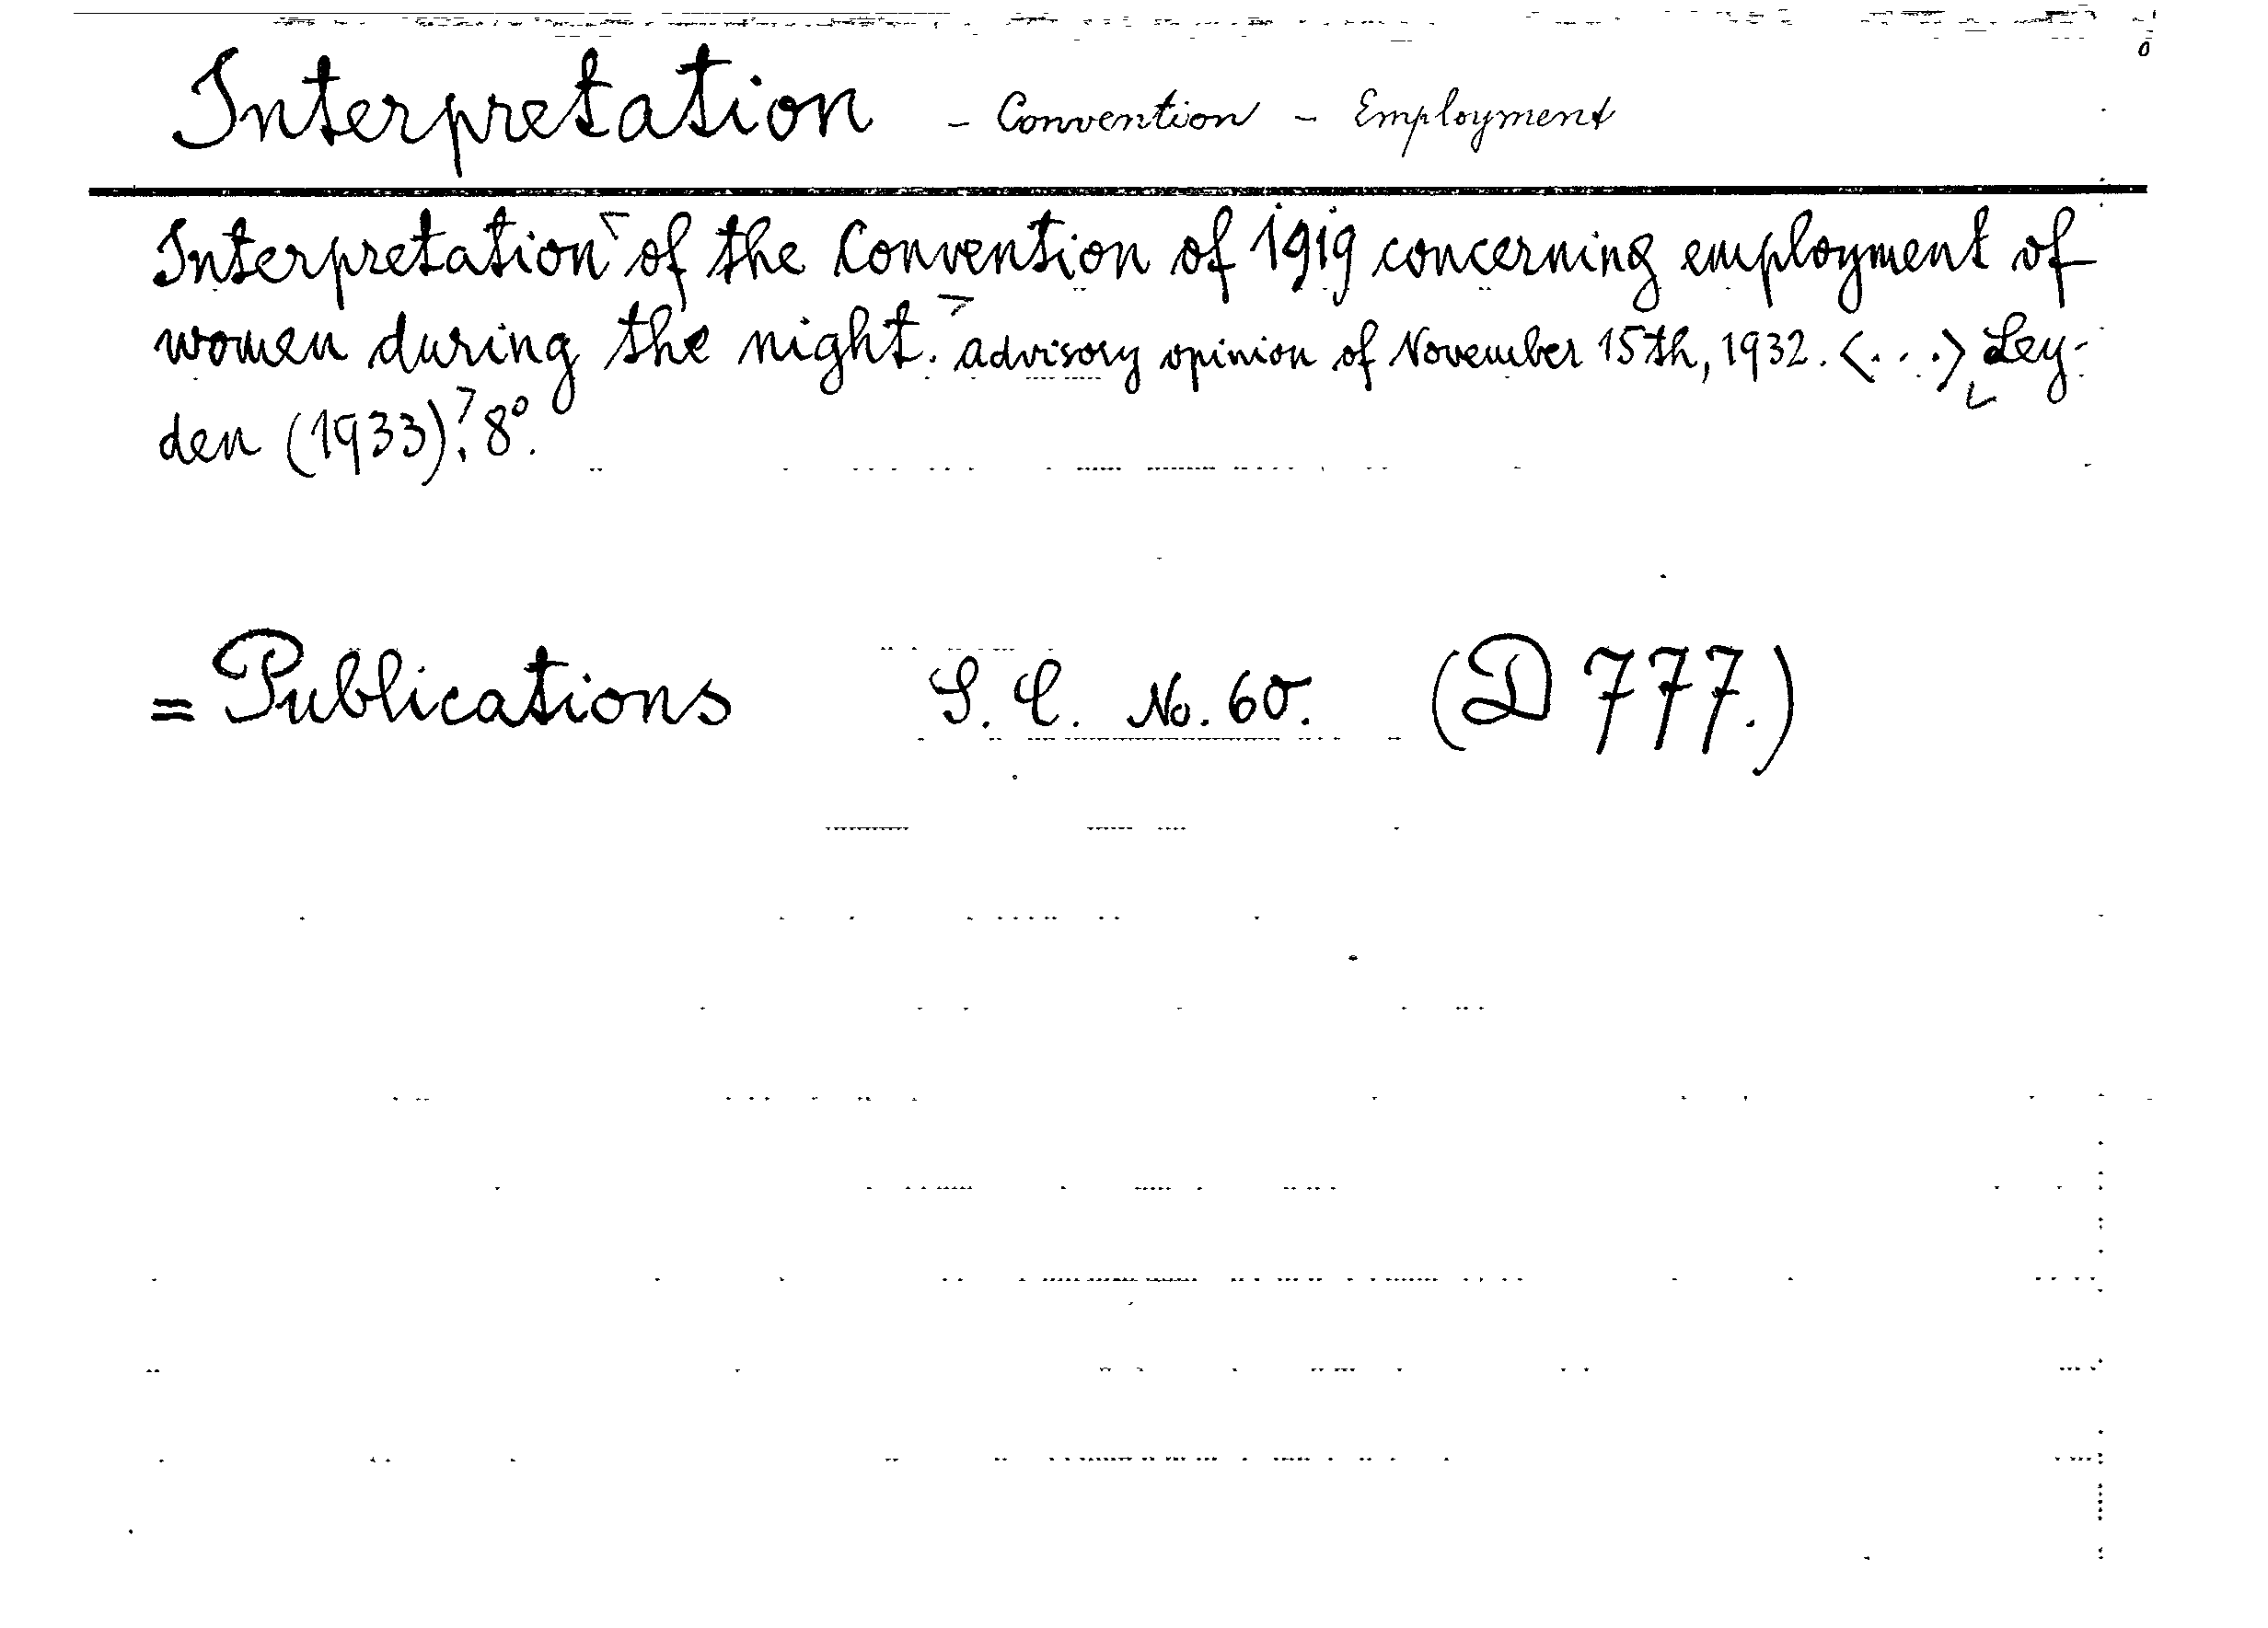 Interpretation - Convention - Employment
Interpretation of the Convention of 1919 concerning employment of
women during the night. Advisory opinion of November 15th, 1932. <...> Ley-
den (1933). 8°.
= Publications S. C. No. 60. (D 777.)